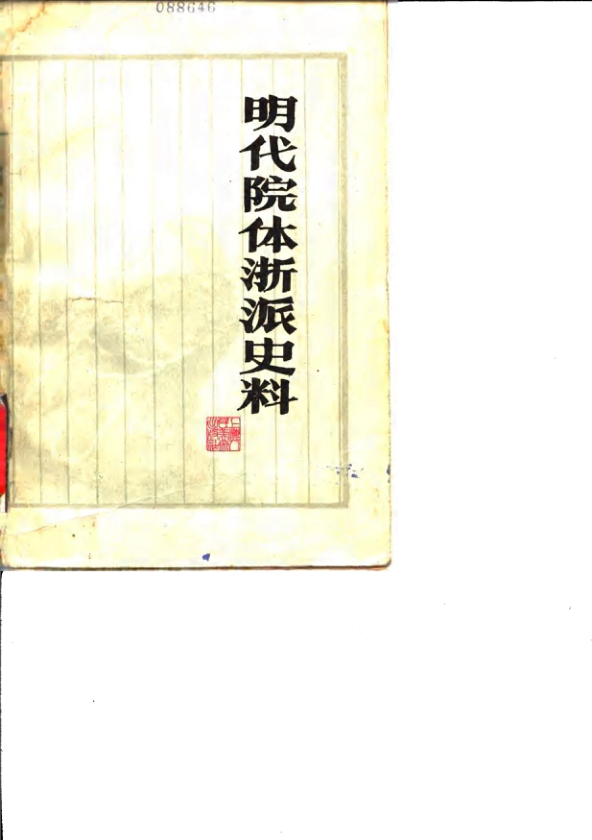 088646
明代院体浙派史料